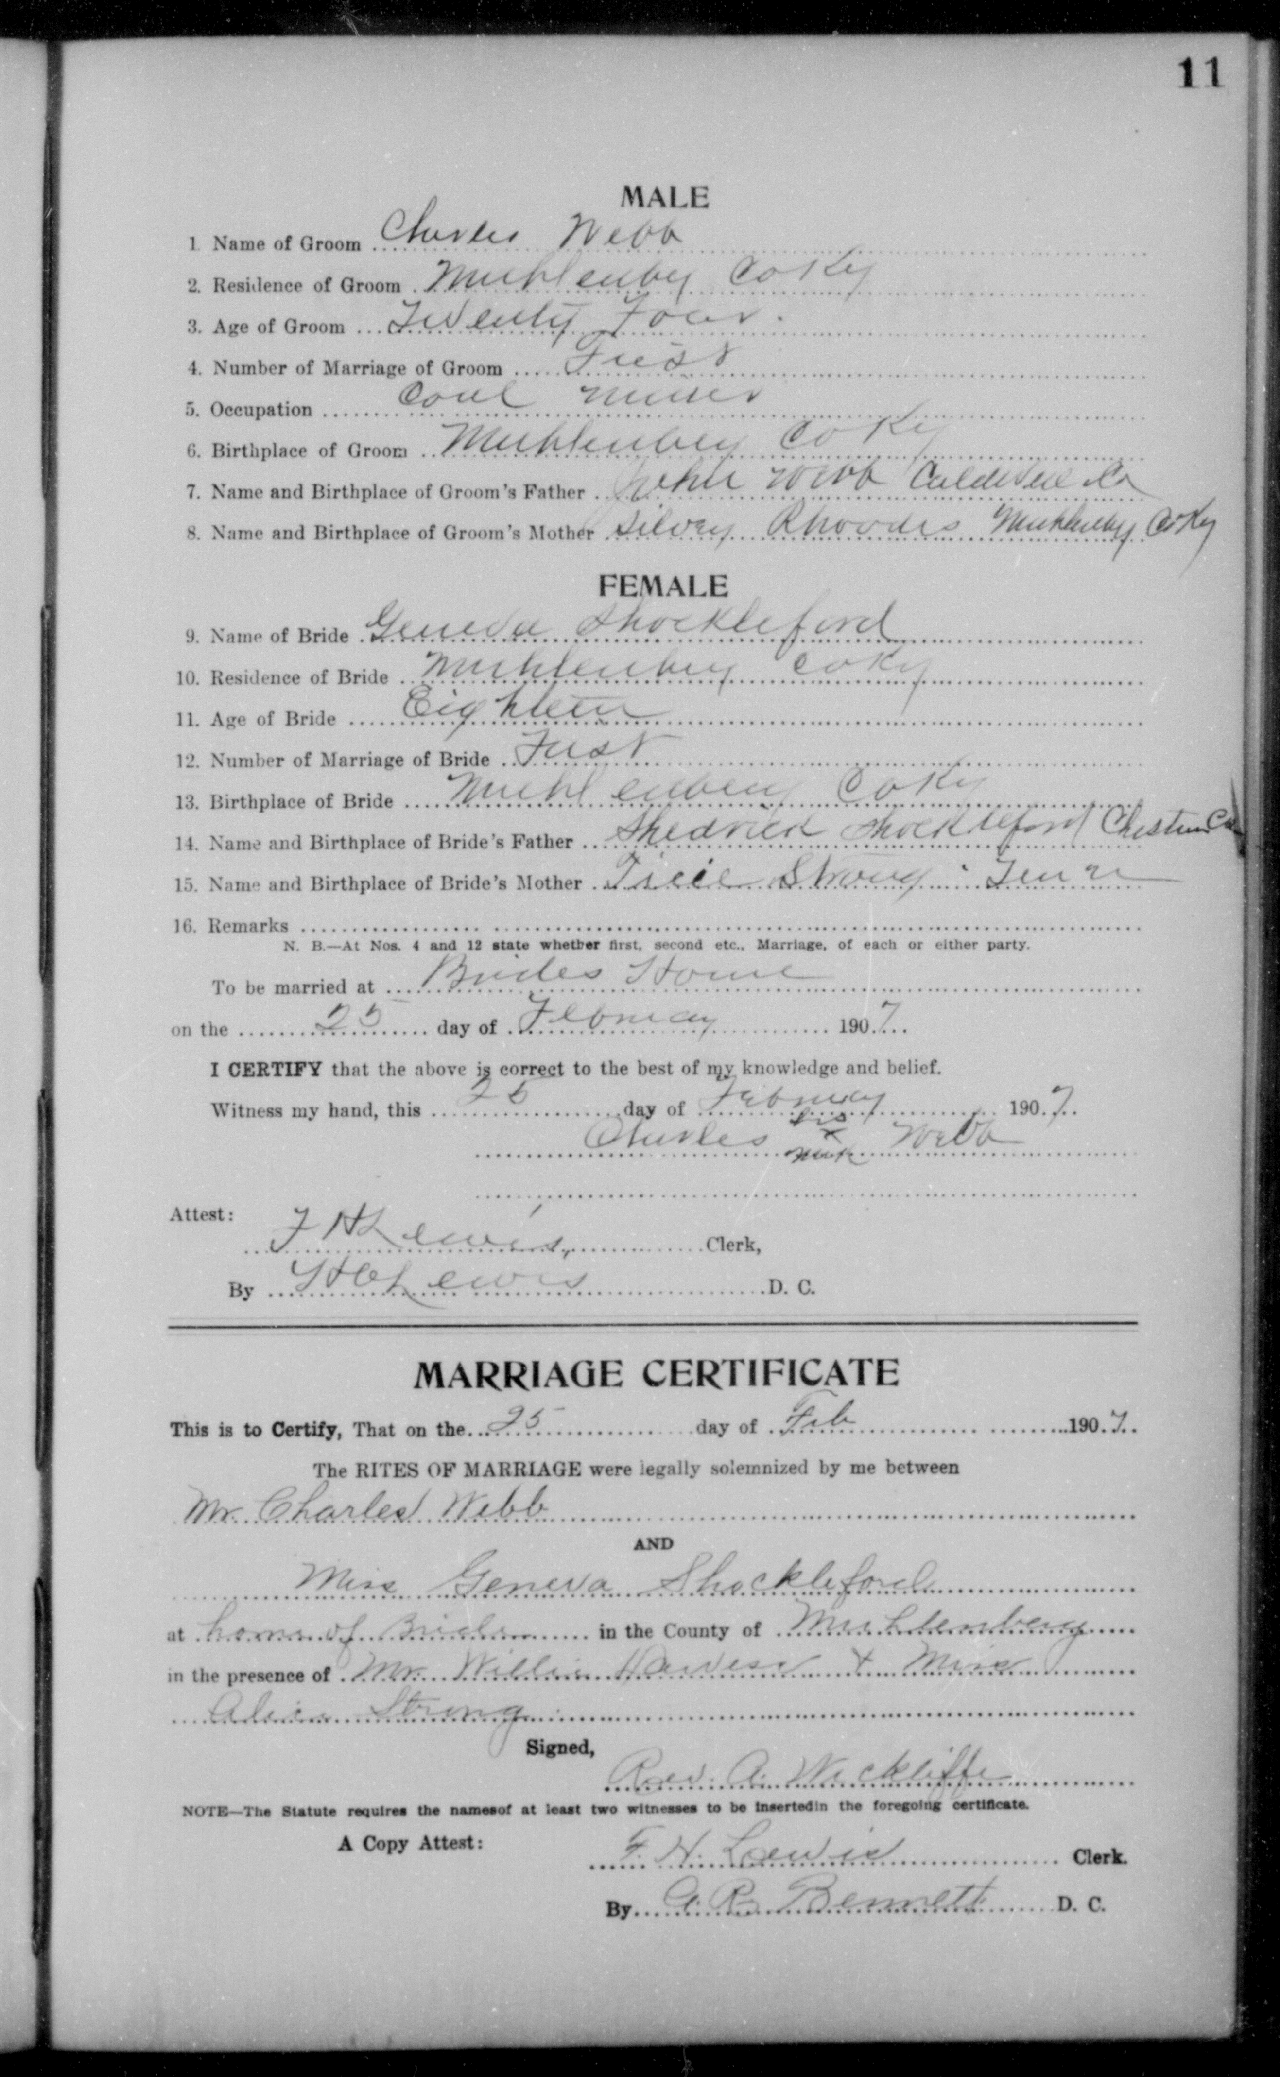 11
MALE
1 Name of Groom Charles Webb
2. Residence of Groom Muhlenberg Co Ky
3. Age of Groom Twenty Four.
4. Number of Marriage of Groom First
5. Occupation Coal Miner
6. Birthplace of Groom Muhlenberg Co Ky
7. Name and Birthplace of Groom's Father John Webb Caldwell Co
8. Name and Birthplace of Groom's Mother Silvey Rhoades Muhlenberg Co Ky
FEMALE
9. Name of Bride Geneva Shockleford
10. Residence of Bride Muhlenberg Co Ky
11. Age of Bride Eighteen
12. Number of Marriage of Bride First
13. Birthplace of Bride Muhlenberg Co Ky
14. Name and Birthplace of Bride's Father Shockleford
15. Name and Birthplace of Bride's Mother Strong Tenn
16. Remarks
N. B.—At Nos. 4 and 12 state whether first, second etc., Marriage, of each or either party.
To be married at Brides Home
on the 25 day of February 1907
I CERTIFY that the above is correct to the best of my knowledge and belief.
Witness my hand, this 25 day of February 1907
his
Charles x Webb
mark
Attest:
F H Lewis, Clerk,
By Lewis D. C.
MARRIAGE CERTIFICATE
This is to Certify, That on the 25 day of Feb 1907
The RITES OF MARRIAGE were legally solemnized by me between
Mr. Charles Webb
AND
Miss Geneva Shockleford
at home of Bride in the County of Muhlenberg
in the presence of Mr. Willie & Miss
Alice Strong
Signed,
Rev. A. Wickliffe
NOTE—The Statute requires the namesof at least two witnesses to be insertedin the foregoing certificate.
A Copy Attest:
F. H. Lewis Clerk.
By G. R. Bennett D. C.